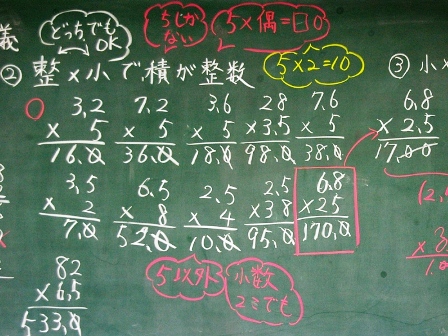 義
どっちでも
OK
5しか
ない
5×偶=□0
② 整×小で、積が整数
5×2=10
③ 小×
3.2
× 5
16.0
7.2
× 5
36.0
3.6
× 5
18.0
28
×3.5
98.0
7.6
× 5
38.0
6.8
× 2.5
17.00
3.5
× 2
7.0
6.5
× 8
52.0
2.5
× 4
10.0
2.5
×38
95.0
6.8
×25
170.0
5以外
小数
2ミでも
82
×6.5
533.0